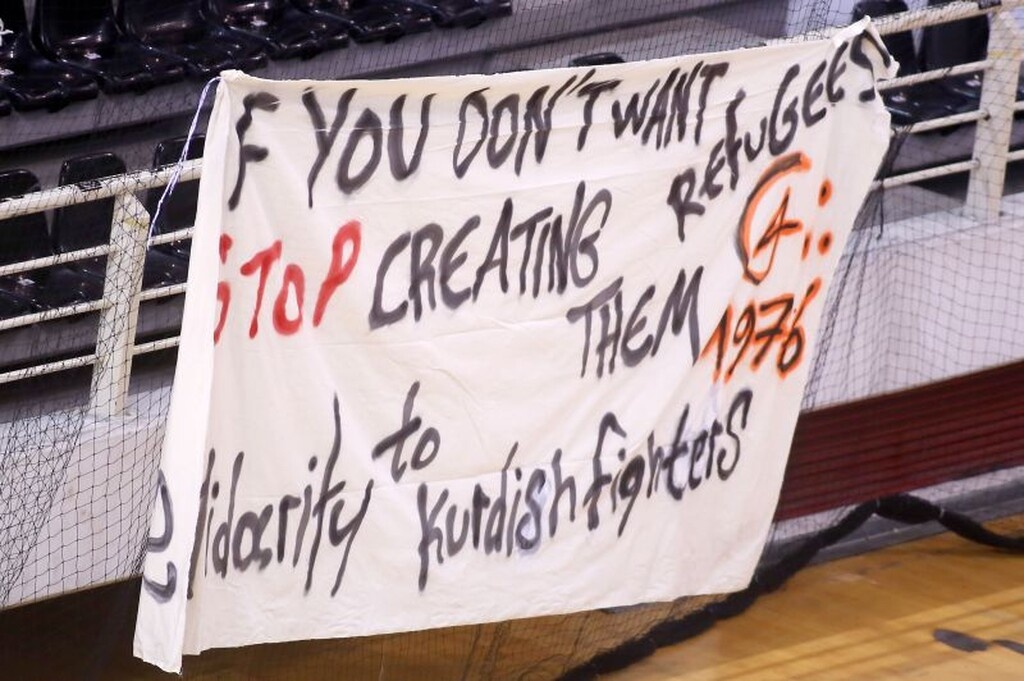 F YOU DON'T WANT REfuGEES
STOP CREATING THEM
A:.: 1976
lidarity to Kurdish fighters